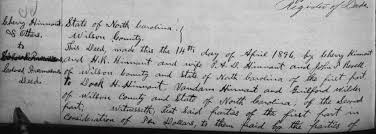 Register of Deeds
Cherry Hinnant State of North Carolina
& Others Wilson County
to This Deed, made this the 14th day of April 1896 by Cherry Hinnant
and H.R. Hinnant and wife and John
Deed. of Wilson County and State of North Carolina of the first part
to Dock H. Hinnant, Vandorn Hinnant and Gilford Wilder
of Wilson County and State of North Carolina, of the second
part; Witnesseth, that said parties of the first part in
consideration of Ten Dollars, to them paid by the parties of